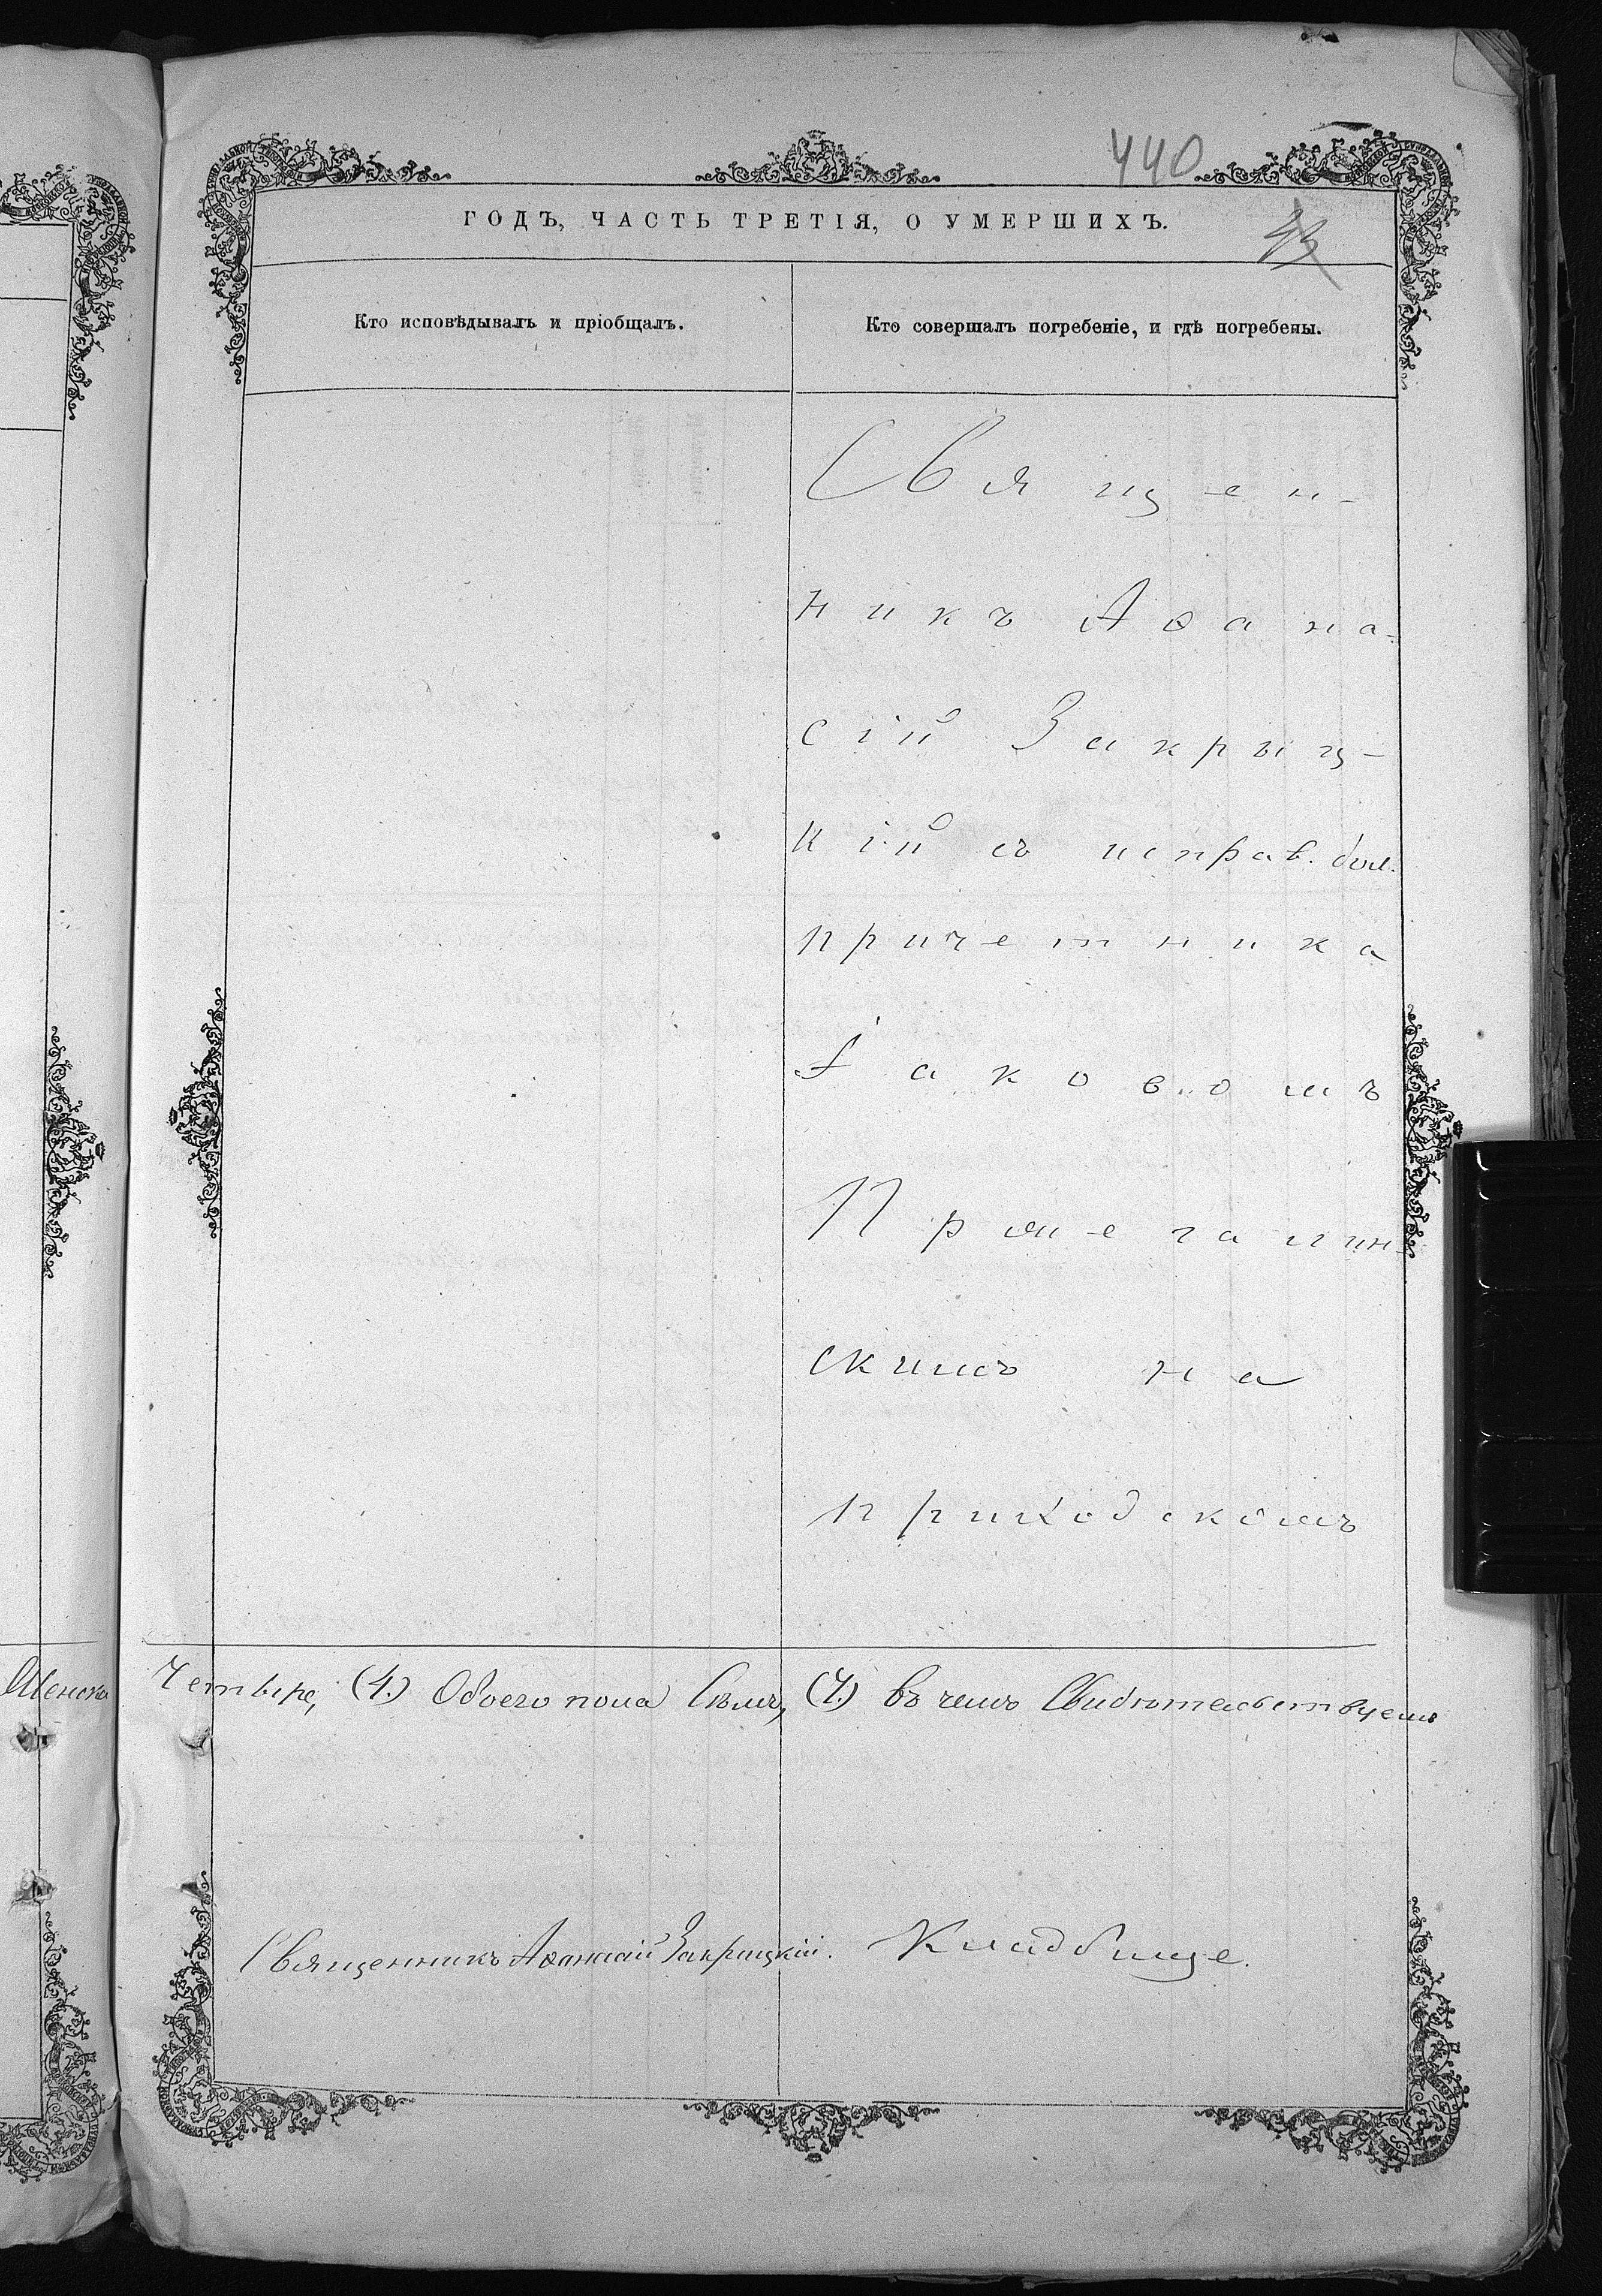 440
ГОДЪ, ЧАСТЬ ТРЕТІЯ, О УМЕРШИХЪ.
43
Кто исповѣдывалъ и пріобщалъ.
Кто совершалъ погребеніе, и гдѣ погребены.
Священ-
никъ Аѳана-
сій Закрыц-
кій съ исправ. дол.
причетника
Іаковомъ
Пржегалин-
скимъ на
приходскомъ
Женска
Четыре, (4.) Обоего пола Семь, (7.) въ чемъ Свидѣтельствуемъ
Священникъ Аѳанасій Закрицкій.
Кладбище.